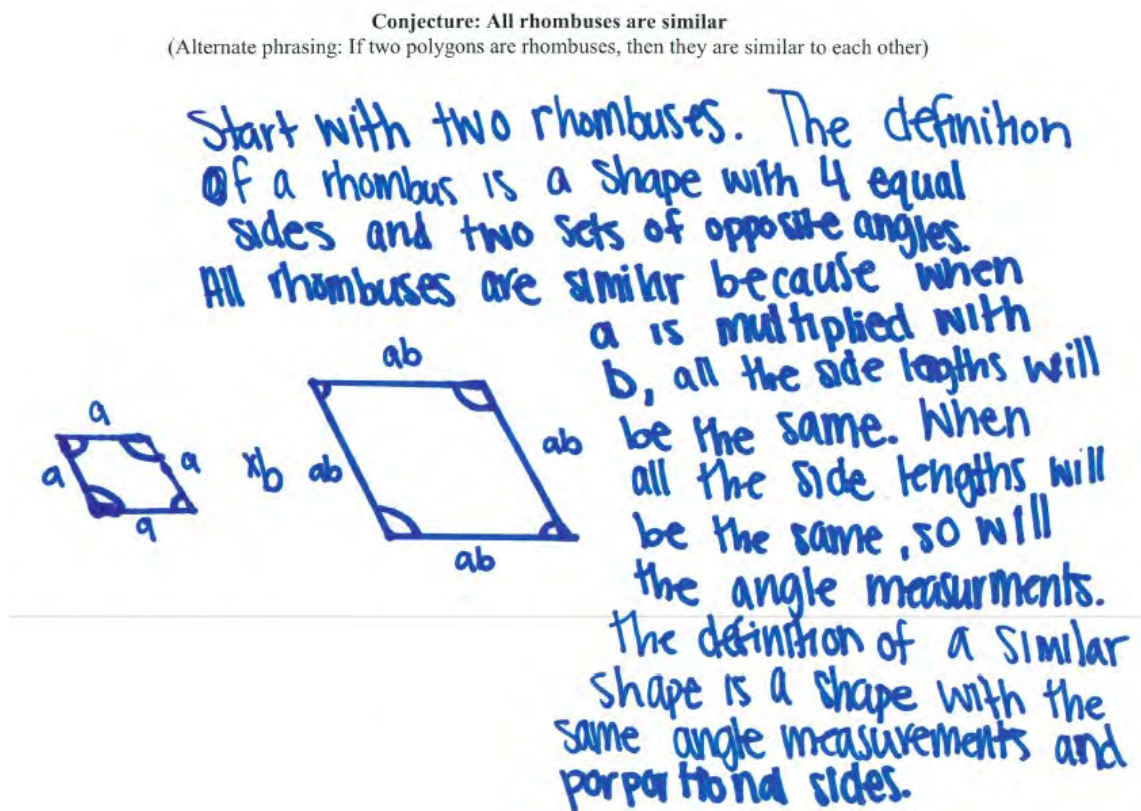 Conjecture: All rhombuses are similar
(Alternate phrasing: If two polygons are rhombuses, then they are similar to each other)
Start with two rhombuses. The definition
of a rhombus is a shape with 4 equal
sides and two sets of opposite angles.
All rhombuses are similar because when
a is multiplied with
b, all the side lengths will
be the same. When
all the side lengths will
be the same, so will
the angle measurments.
The definition of a similar
shape is a shape with the
same angle measurements and
porportional sides.
a
a
a
a
xb
ab
ab
ab
ab